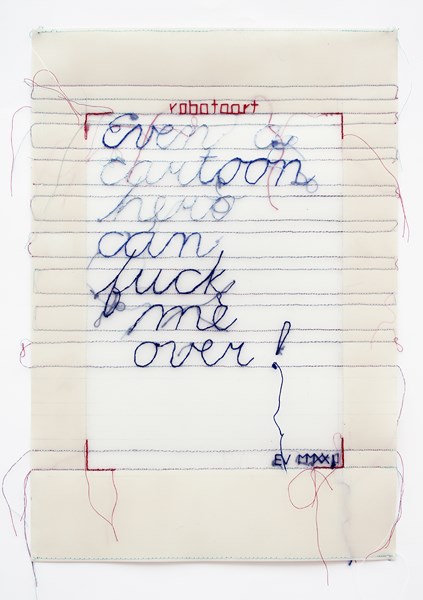 robotoart
Even a
cartoon
hero
can
fuck
me
over!
EV MMXXI